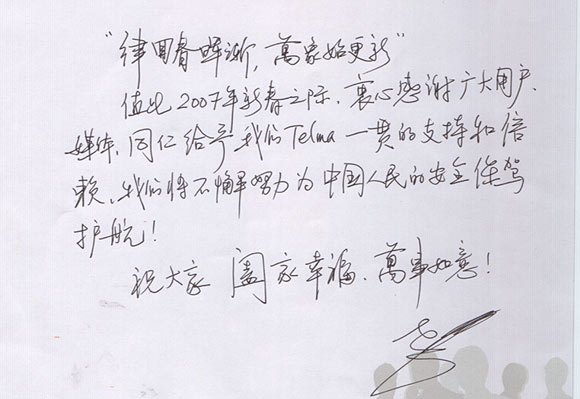 “律回春晖渐，萬象始更新”
值此2007年新春之际，衷心感谢广大用户、
媒体、同仁给予我们Telma一贯的支持和信
赖、我们将不懈努力为中国人民的安全保驾
护航！
祝大家 阖家幸福、萬事如意！